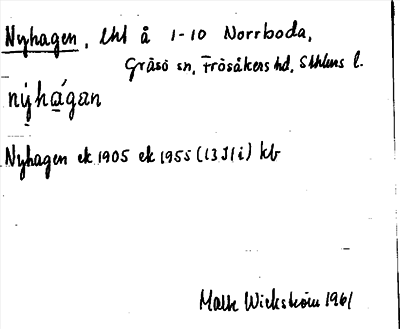 Nyhagen, lht å 1-10 Norrboda,
Gräsö sn, Frösåkers hd, Sthlms l.
ný̨hą́gan
Nyhagen ek 1905 ek 1955 (13J1i) kb
Wickström 1961